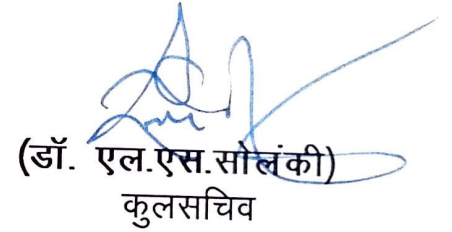 (डॉ. एल.एस.सोलंकी)
कुलसचिव